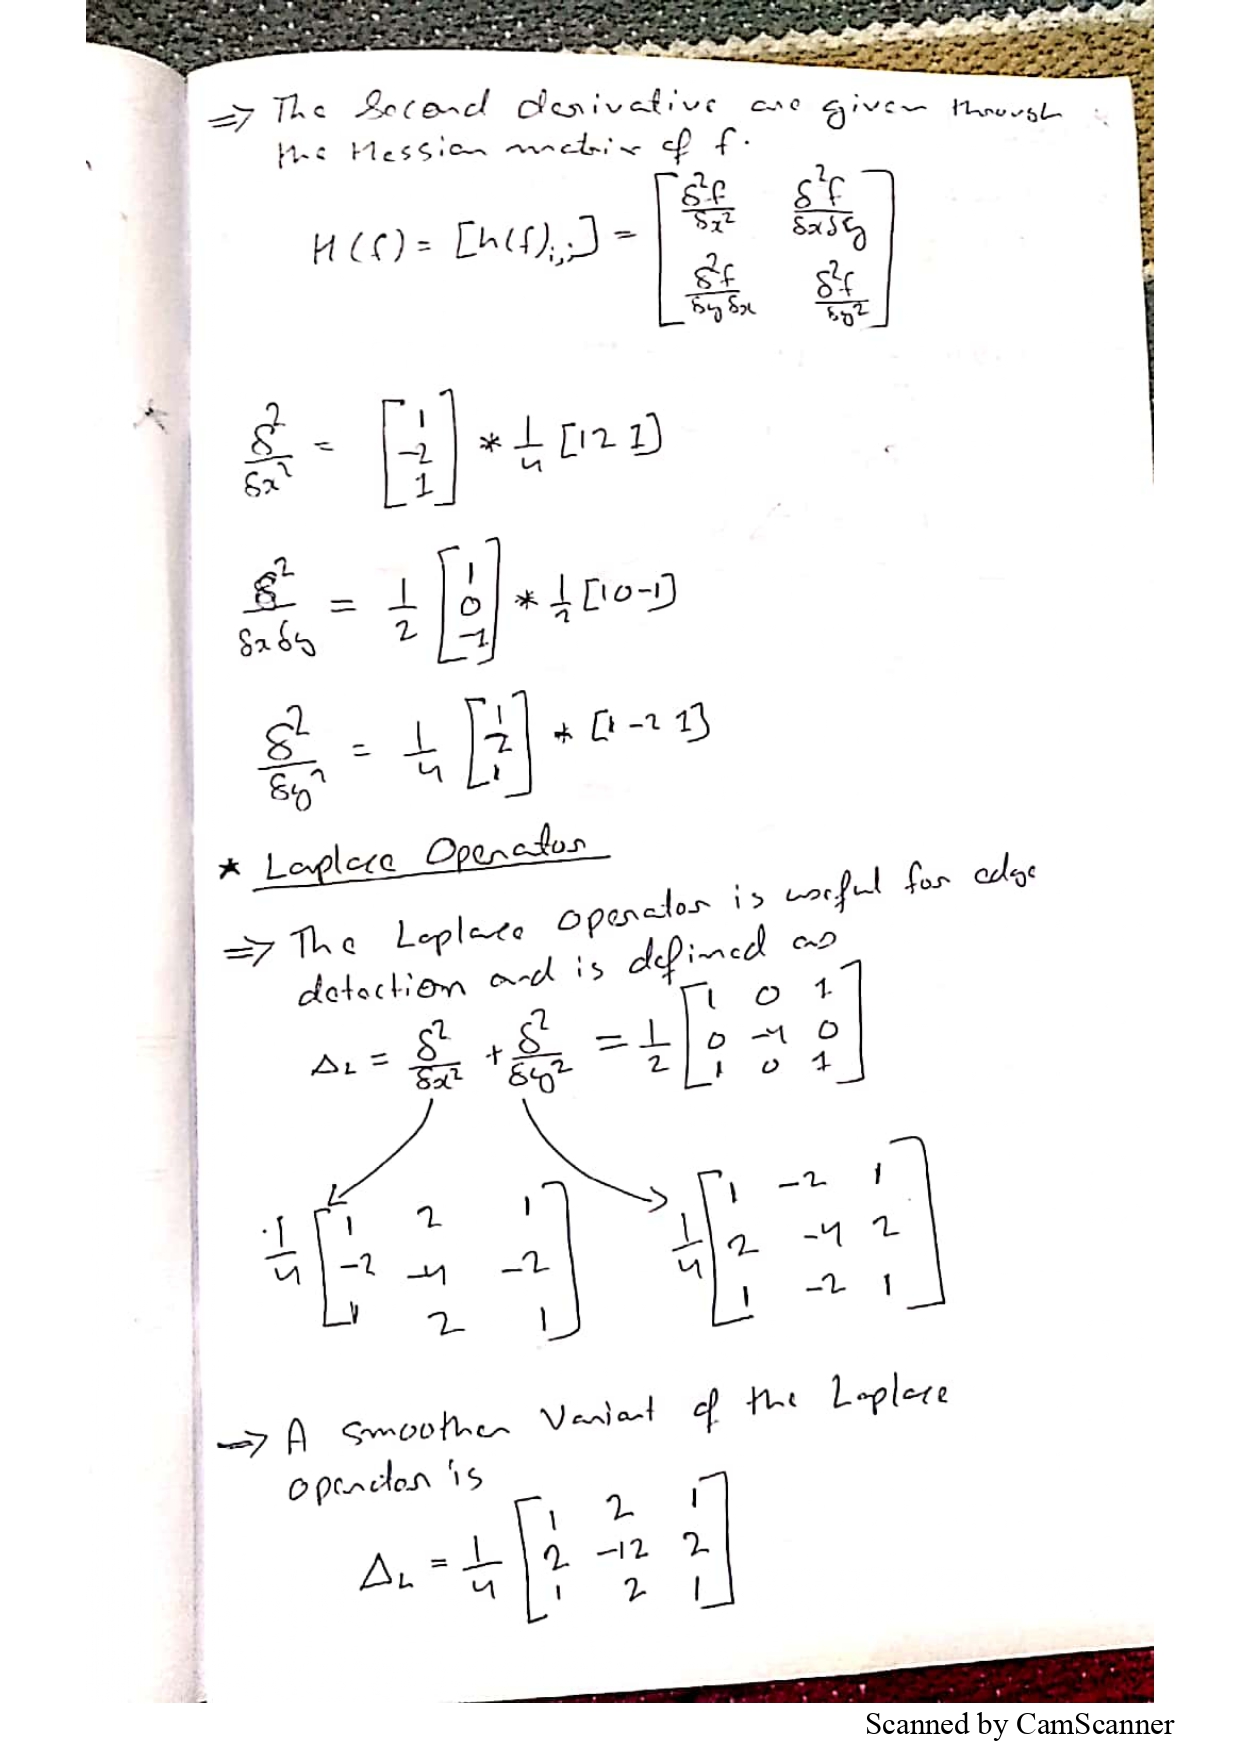 ⇒ The Second derivative are given through
the Hessian matrix of f.
H(f) = [h(f)i,j] = [δ²f/δx² δ²f/δxδy; δ²f/δyδx δ²f/δy²]
δ²/δx² = [1; -2; 1] * 1/4 [1 2 1]
δ²/δxδy = 1/2 [1; 0; -1] * 1/2 [1 0 -1]
δ²/δy² = 1/4 [1; 2; 1] * [1 -2 1]
* Laplace Operator
⇒ The Laplace operator is useful for edge
detection and is defined as
ΔL = δ²/δx² + δ²/δy² = 1/2 [1 0 1; 0 -4 0; 1 0 1]
1/4 [1 2 1; -2 -4 -2; 1 2 1] 1/4 [1 -2 1; 2 -4 2; 1 -2 1]
⇒ A smoother Variant of the Laplace
operator is
ΔL = 1/4 [1 2 1; 2 -12 2; 1 2 1]
Scanned by CamScanner